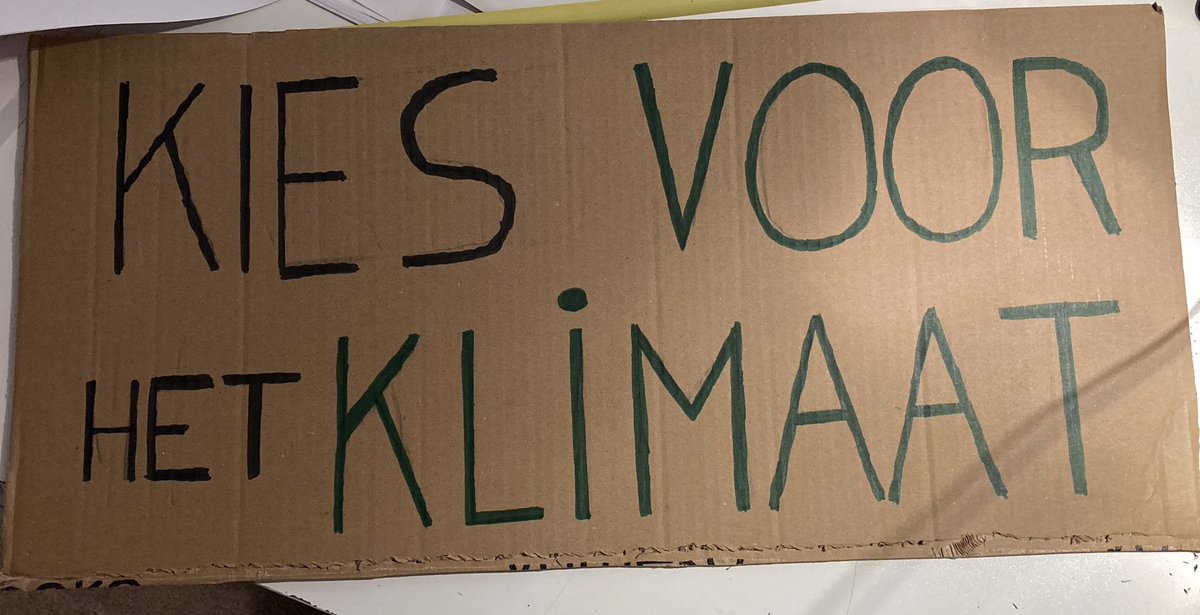 KIES VOOR
HET KLiMAAT